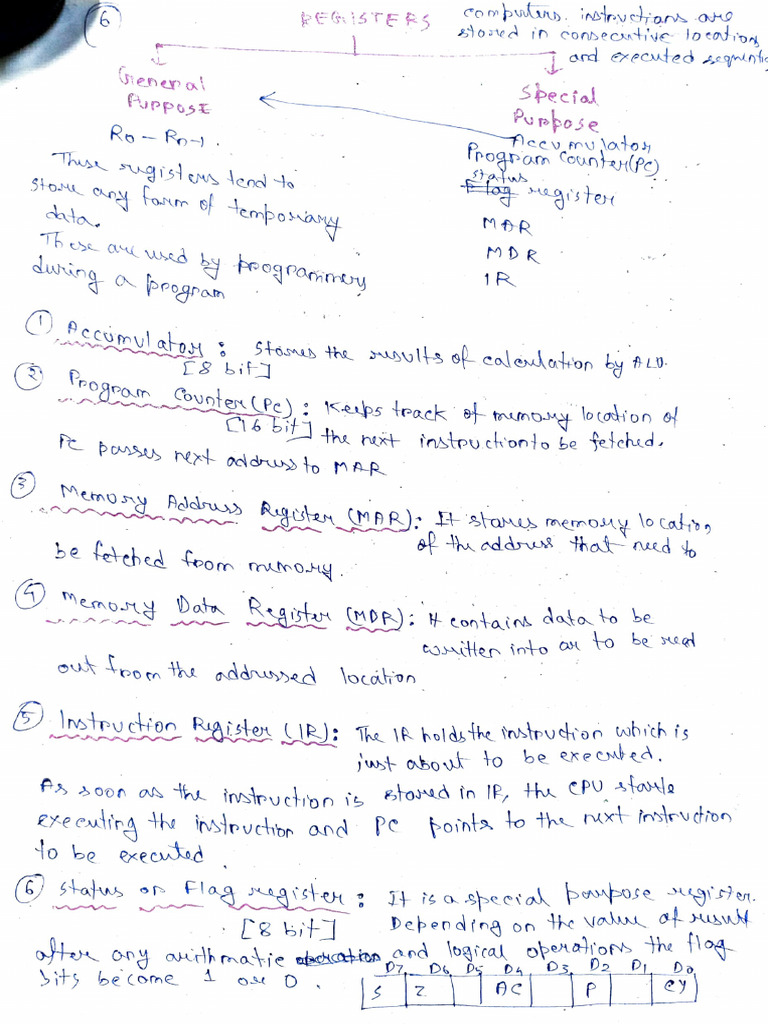 6
REGISTERS
computers. instructions are
stored in consecutive locations
and executed sequentia
General
PURPOSE
Special
Purpose
R0 - Rn-1.
These registers tend to
store any form of temporary
data.
These are used by programmers
during a program
Accumulator
Program Counter(PC)
status
Flag register
MAR
MDR
IR
1 Accumulator : Stores the results of calculation by ALU.
[8 bit]
2 Program Counter (PC) : Keeps track of memory location of
[16 bit] the next instruction to be fetched.
PC passes next address to MAR
3 Memory Address Register (MAR) : It stores memory location
of the address that need to
be fetched from memory.
4 Memory Data Register (MDR) : It contains data to be
written into or to be read
out from the addressed location
5 Instruction Register (IR) : The IR holds the instruction which is
just about to be executed.
As soon as the instruction is stored in IR, the CPU starts
executing the instruction and PC points to the next instruction
to be executed.
6 Status or Flag register : It is a special purpose register.
[8 bit] Depending on the value of result
after any arithmatic operation and logical operations the flag
bits become 1 or 0.
D7 D6 D5 D4 D3 D2 D1 D0
S Z AC P CY